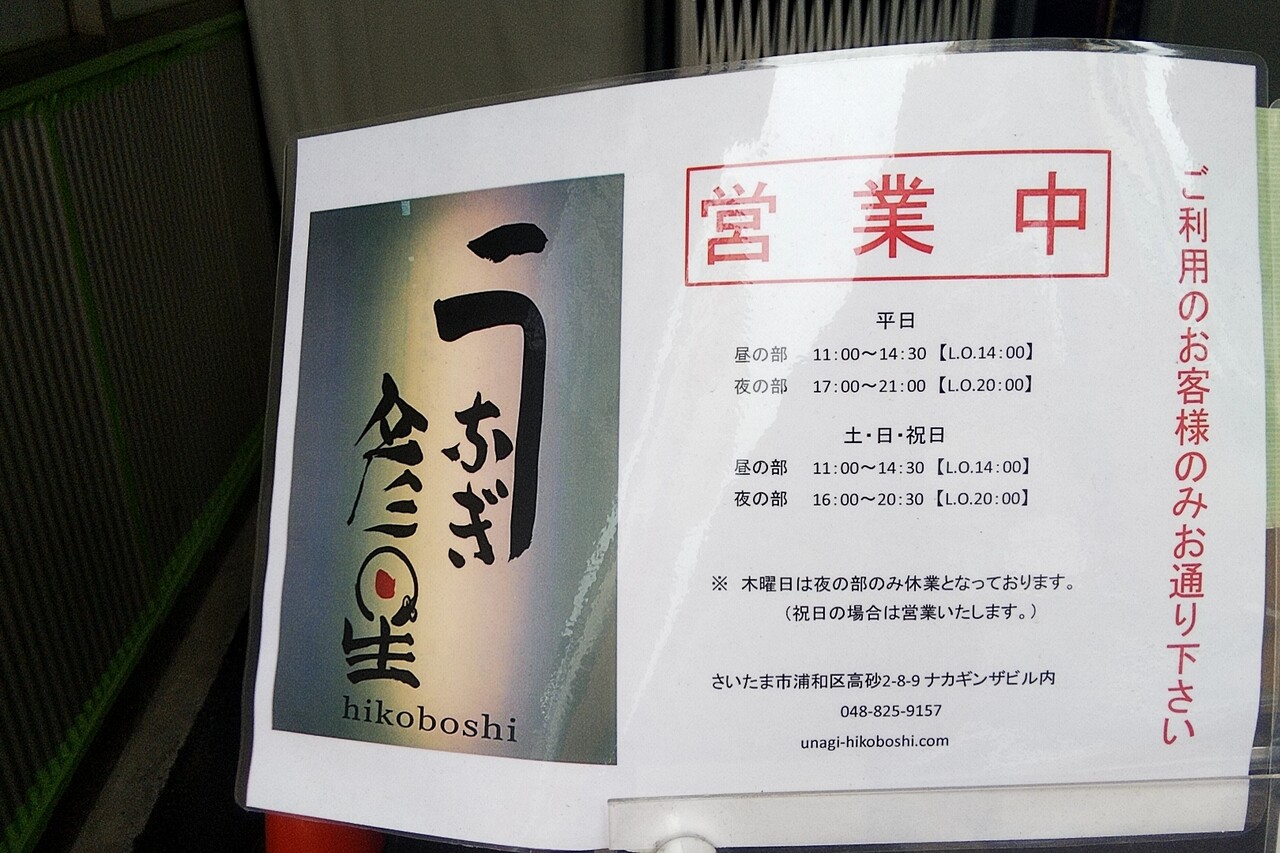 うなぎ
彦星
hikoboshi
営業中
平日
昼の部 11:00～14:30 【L.O.14:00】
夜の部 17:00～21:00 【L.O.20:00】
土・日・祝日
昼の部 11:00～14:30 【L.O.14:00】
夜の部 16:00～20:30 【L.O.20:00】
※ 木曜日は夜の部のみ休業となっております。
（祝日の場合は営業いたします。）
さいたま市浦和区高砂2-8-9 ナカギンザビル内
048-825-9157
unagi-hikoboshi.com
ご利用のお客様のみお通り下さい